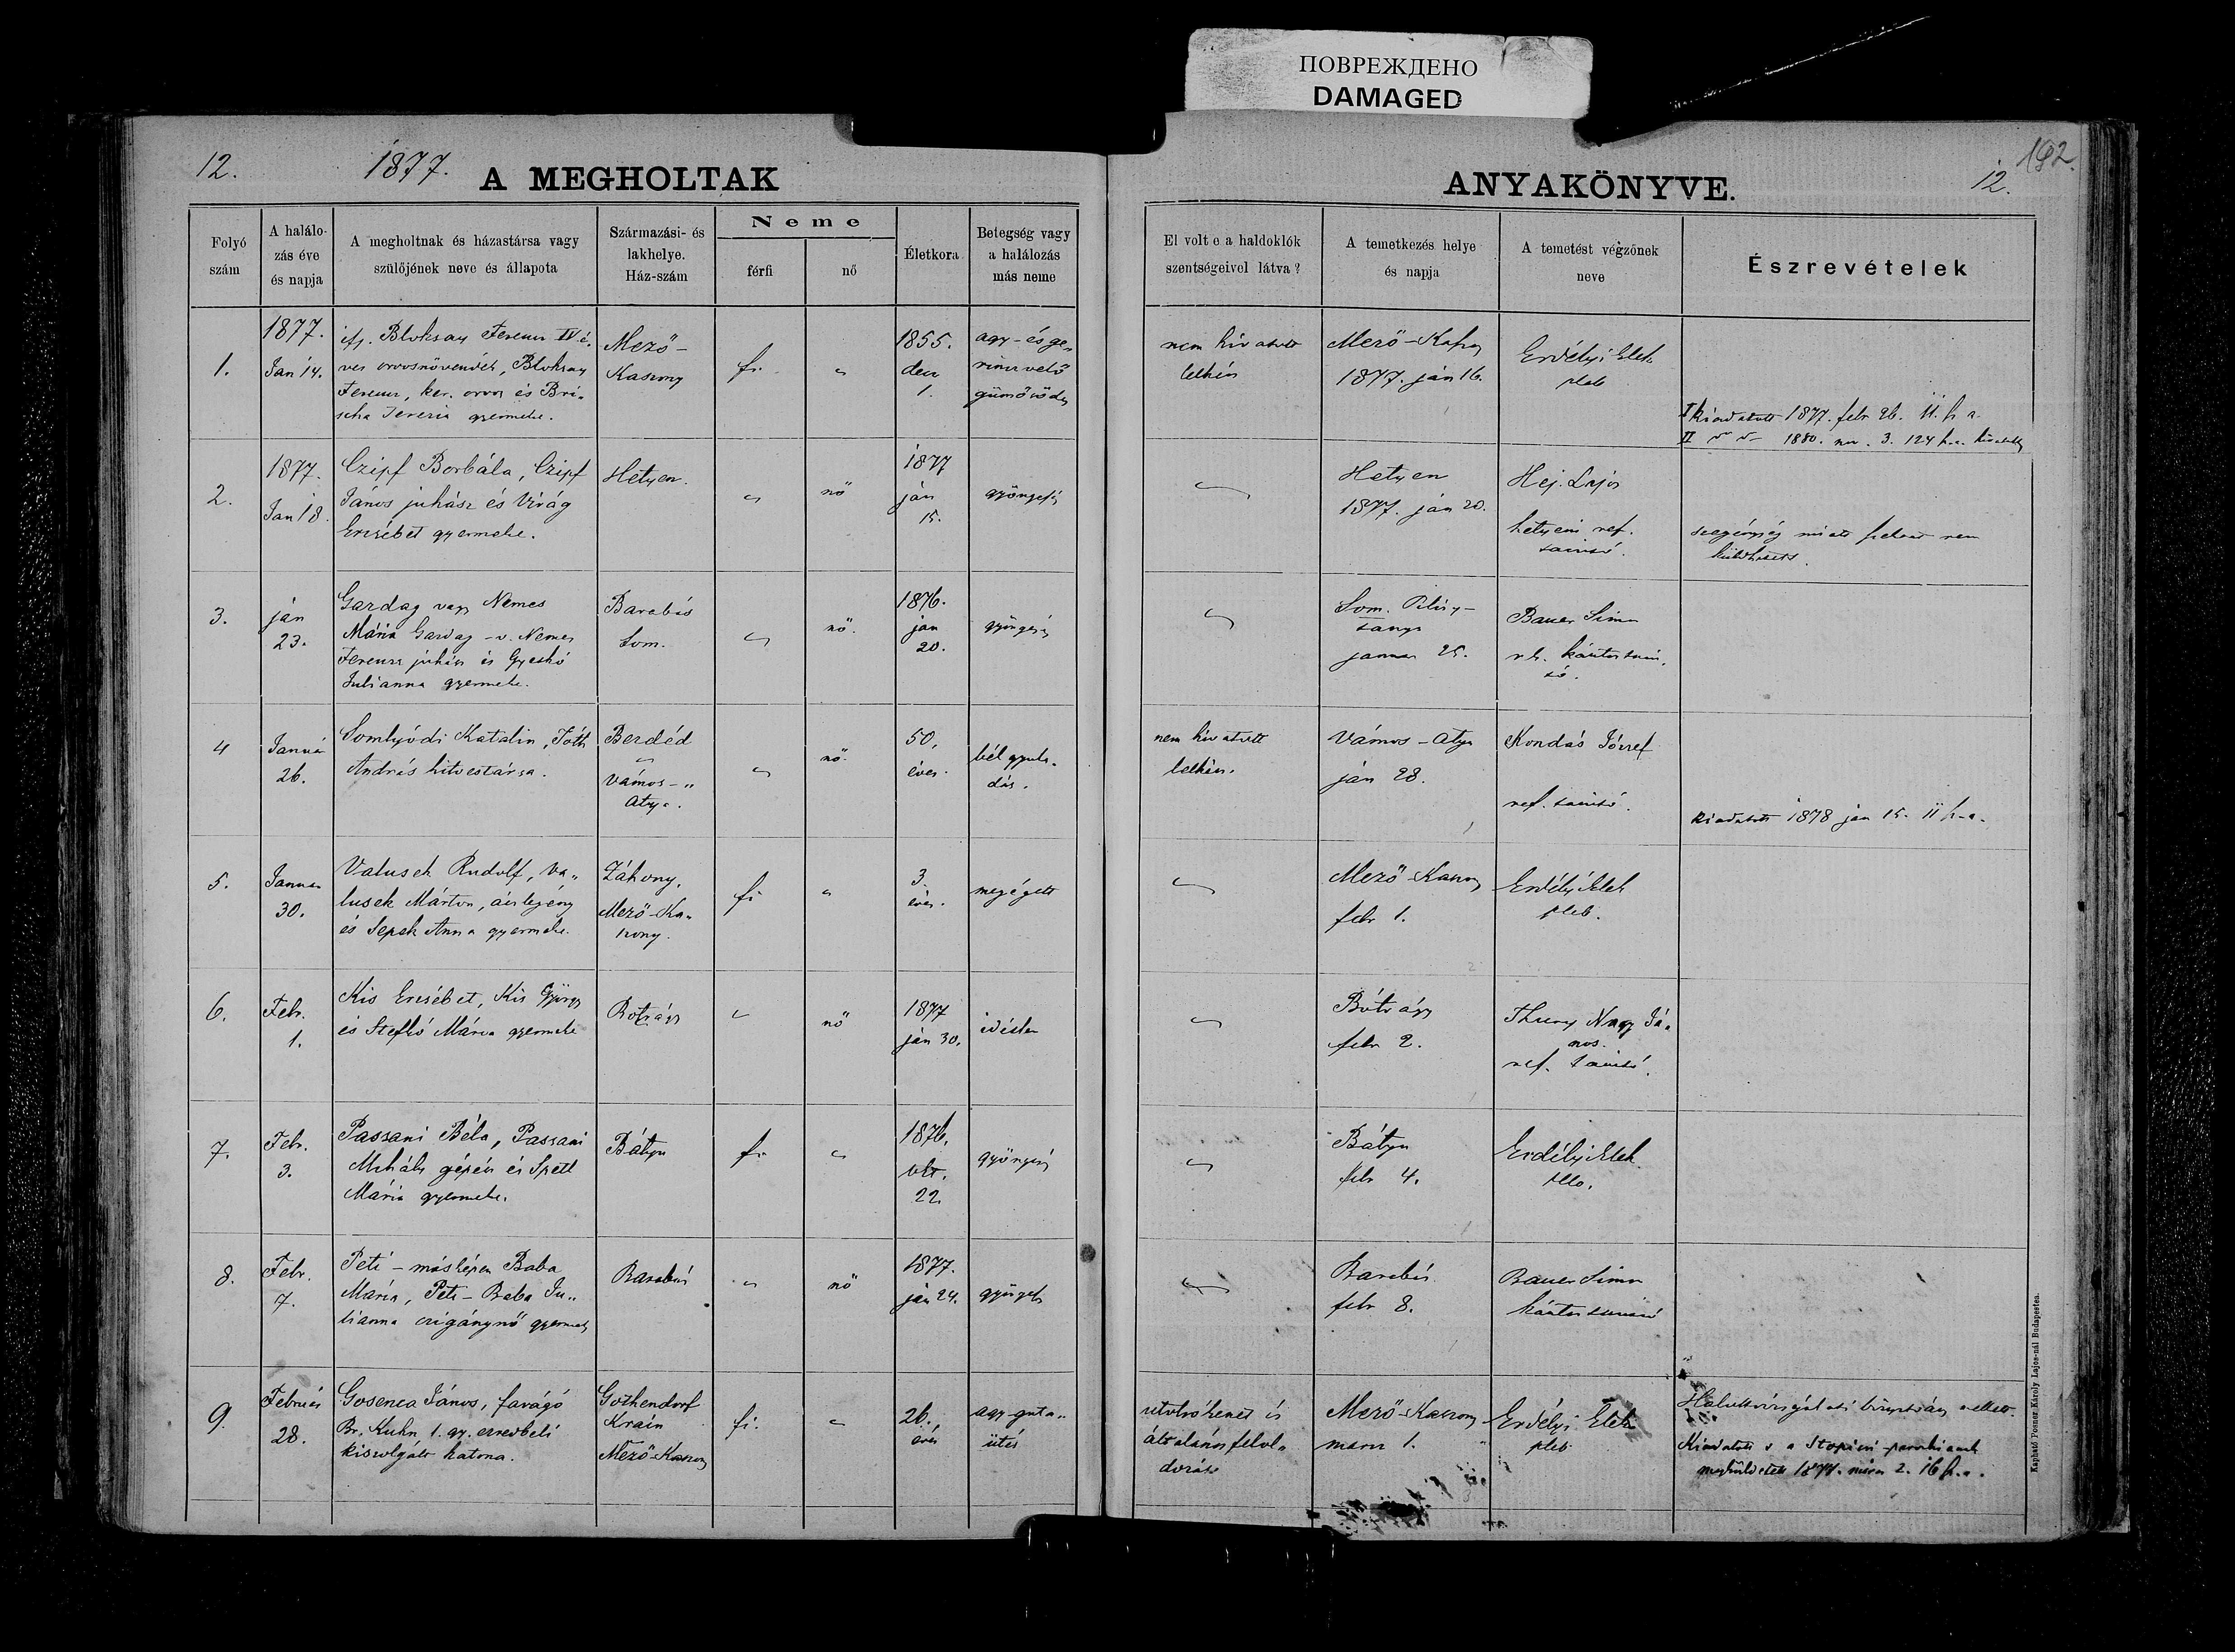 ПОВРЕЖДЕНО
DAMAGED
12.
1877.
A MEGHOLTAK
ANYAKÖNYVE.
12.
192.
Folyó
szám
A halálo-
zás éve
és napja
A megholtnak és házastársa vagy
szülőjének neve és állapota
Származási- és
lakhelye.
Ház-szám
Neme
férfi
nő
Életkora
Betegség vagy
a halálozás
más neme
El volt e a haldoklók
szentségeivel látva?
A temetkezés helye
és napja
A temetést végzőnek
neve
Észrevételek
1.
1877.
Jan 14.
ifj. Bloksay Ferencz IV é-
ves orvosnövendék, Bloksay
Ferencz, ker. orvos és Bri-
scha Terezia gyermeke.
Mező-
Kaszony
fi.
"
1855.
decz
1.
agy- és ge-
rinczvelő
gümősödés
nem hivatott
lelkész
Mező-Kaszony
1877. ján 16.
Erdélyi Elek
pleb
I Kiadatott 1877. febr. 26. 11. sz. a.
II 1880. nov. 3. 124
2.
1877.
Jan 18.
Czipf Borbála, Czipf
János juhász és Virág
Erzsébet gyermeke.
Hetyen.
"
nő
1877
ján
15.
gyöngeség
"
Hetyen
1877. ján 20.
Héj. Lajos
hetyeni ref.
tanitó.
szegénység miatt nem
3.
ján
23.
Gazdag vagy Nemes
Mária Gazdag - v. Nemes
Ferencz juhász és Gyeskó
Julianna gyermeke.
Barabás
Som.
"
nő.
1876.
jan
20.
gyöngeség
"
Som.
tanya
januar 25.
Bauer Simon
kántortaní-
tó.
4
Január
26.
Somlyódi Katalin, Tóth
András hitvestársa.
Berdéd
"
Vámos-"
Atya.
"
nő.
50,
éves.
bél gyula-
dás.
nem hivatott
lelkész.
Vámos-Atya
ján 28.
Kondás József
ref. tanitó.
kiadatott 1878 jan 15. 11
5.
Januar
30.
Valusek Rudolf, Va-
lusek Márton, ácslegény
és Sepek Anna gyermeke.
Záhony,
Mező-Ka-
szony.
fi
"
3.
éves.
megégett
"
Mező-Kaszony
febr 1.
Erdélyi Elek
pleb.
6.
Febr.
1.
Kis Erzsébet, Kis György
és Stefkó Mária gyermeke
Botrágy
"
nő
1877
ján 30.
idétlen
"
Bótrágy
febr 2.
Thury Nagy Já-
nos.
ref. tanitó.
7.
Febr.
3.
Passani Béla, Passani
Mihály gépész és Spett
Mária gyermeke.
Bátyu
fi.
"
1876.
okt.
22.
gyöngeség
"
Bátyu
febr 4.
Erdélyi Elek
pleb.
8.
Febr.
7.
Peti - másképen Baba
Mária, Peti - Baba Ju-
lianna czigánynő gyermeke
Barabás
"
nő
1877.
ján 24.
gyöngeség
"
Barabás
febr 8.
Bauer Simon
kántortanitó
9.
Február
28.
Gosenca János, favágó
Br. Kuhn 1. gy. ezredbeli
kiszolgált katona.
Gothendorf
Krain
Mező-Kaszony
fi.
"
26.
éves
agy-guta-
ütés
utolsó kenet és
általános felol-
dozás
Mező-Kaszony
marcz 1.
Erdélyi Elek
pleb
Halottvizsgálati
Kiadatott s a
megküldetett 1877. márcz 2. 16 sz. a.
Kapható Posner Károly Lajos-nál Budapesten.